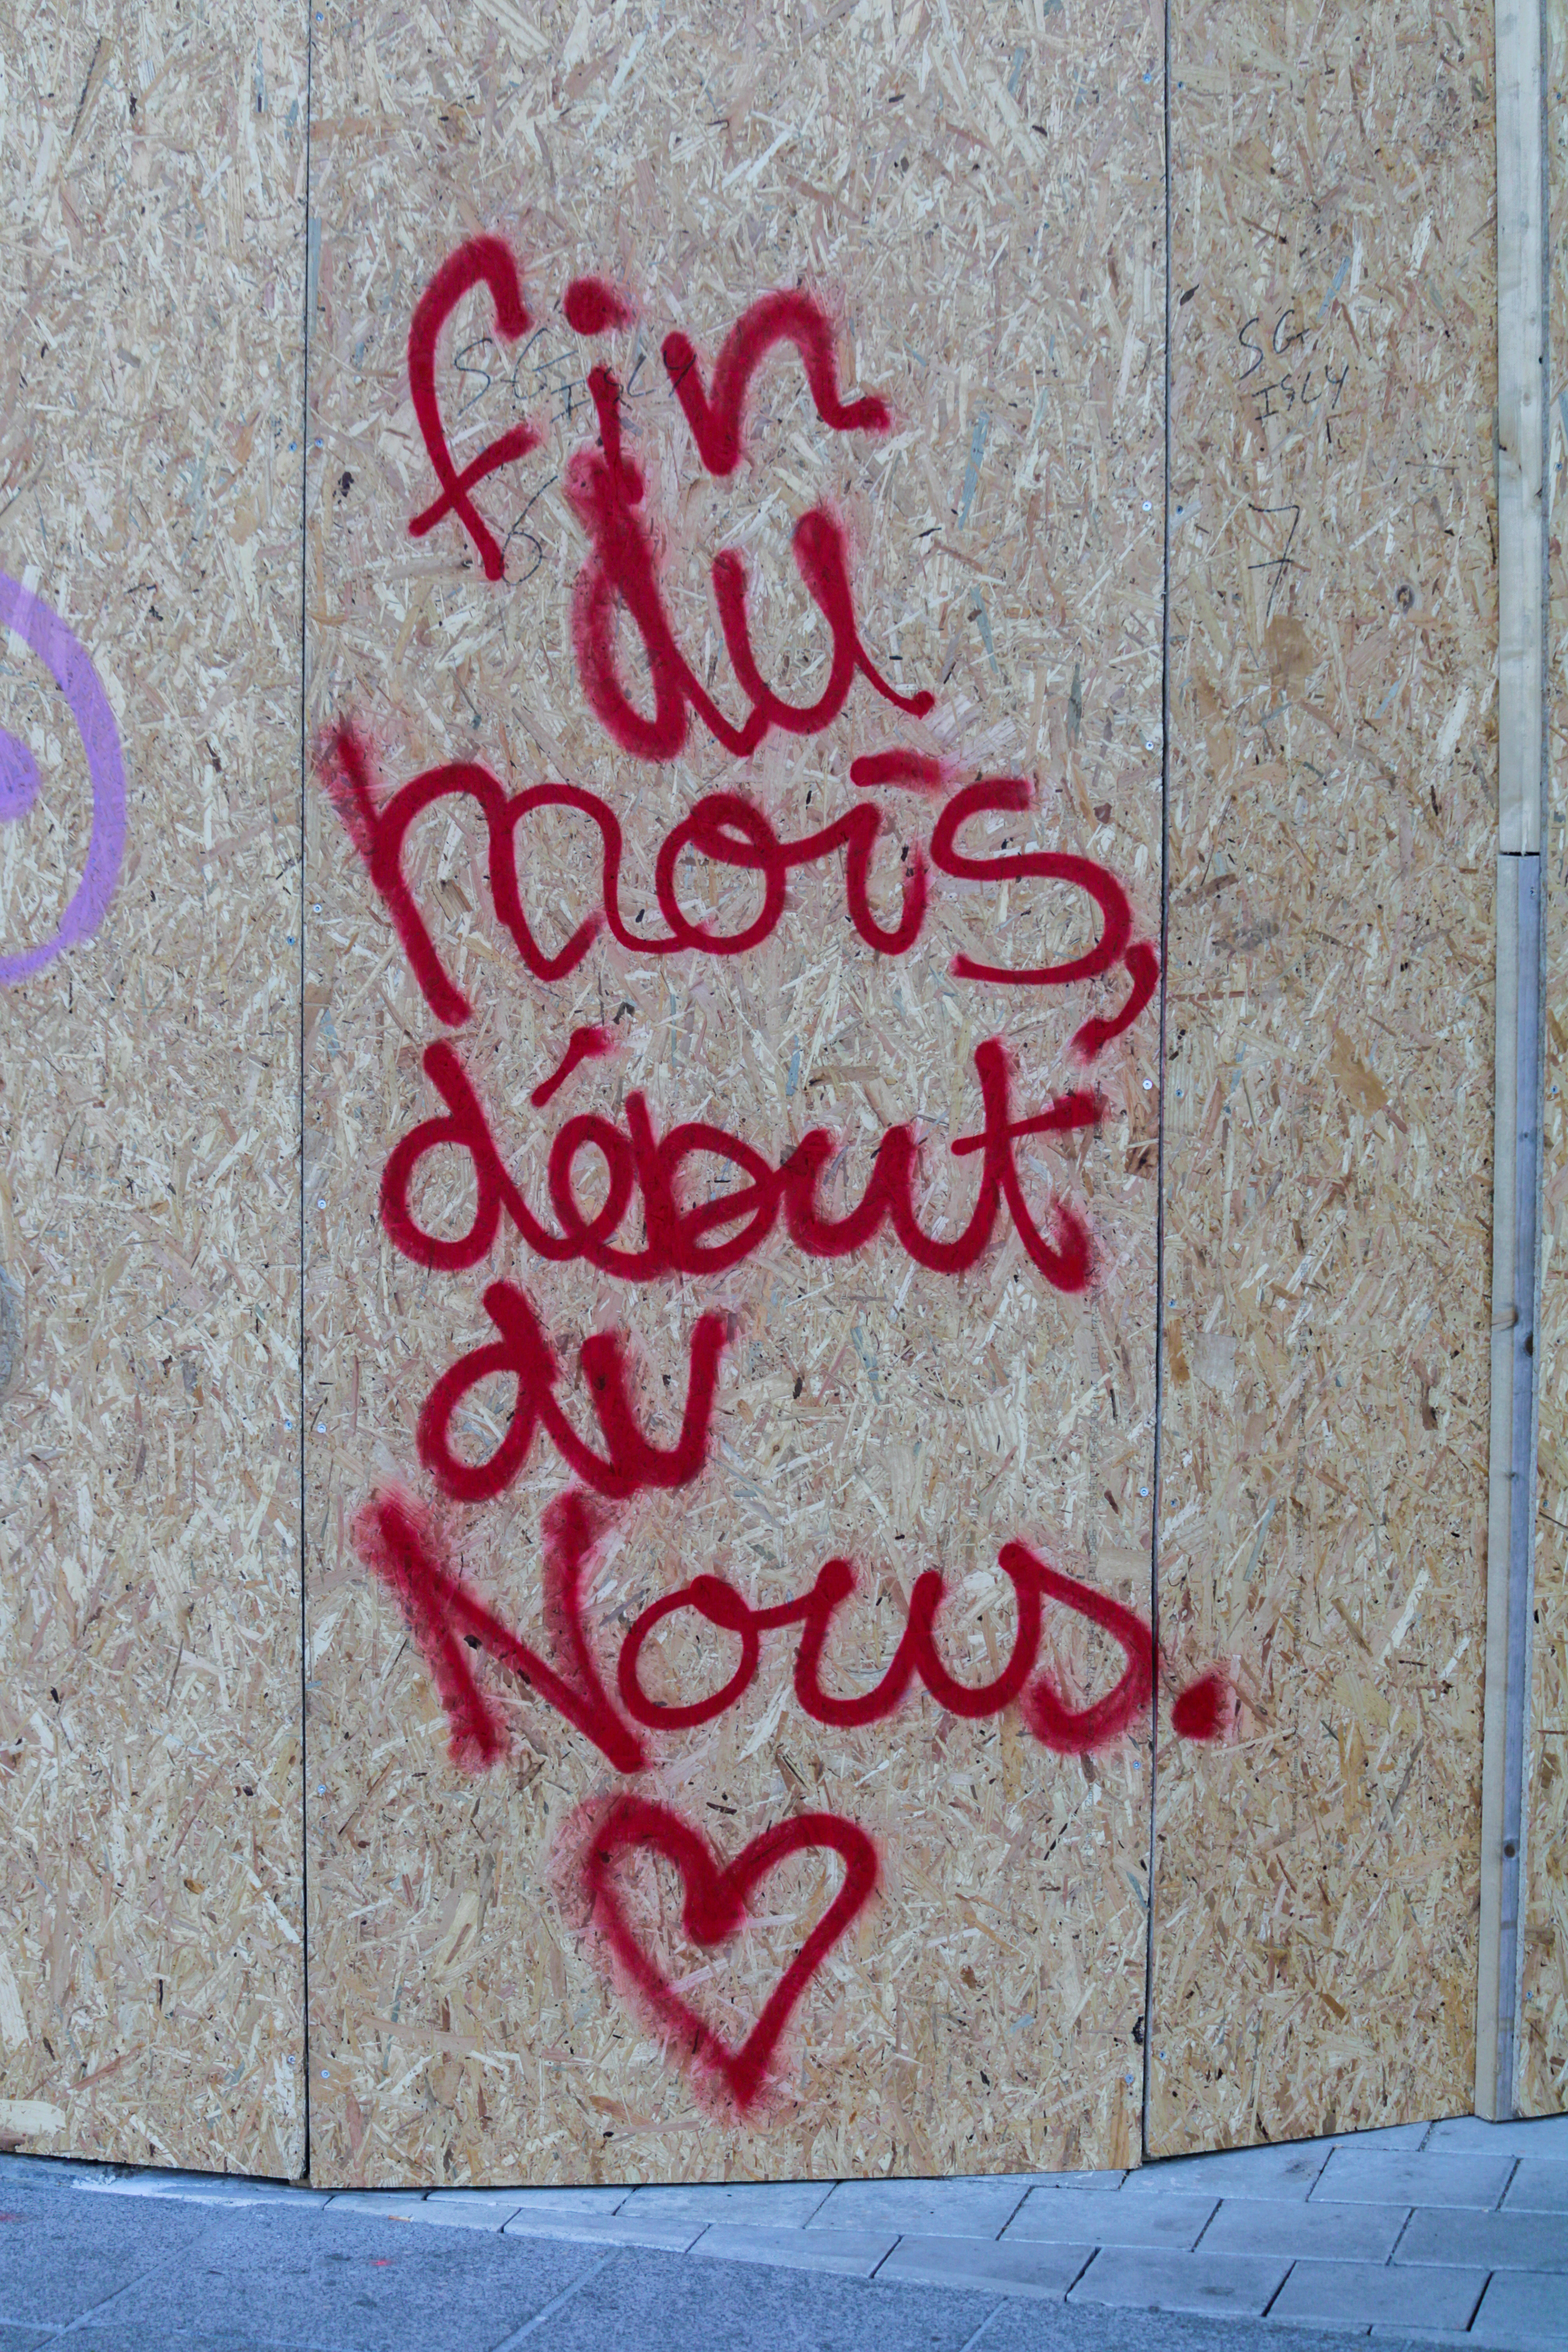 fin
du
mois,
début
du
Nous.
SG
ISLY
6
SG
ISLY
7